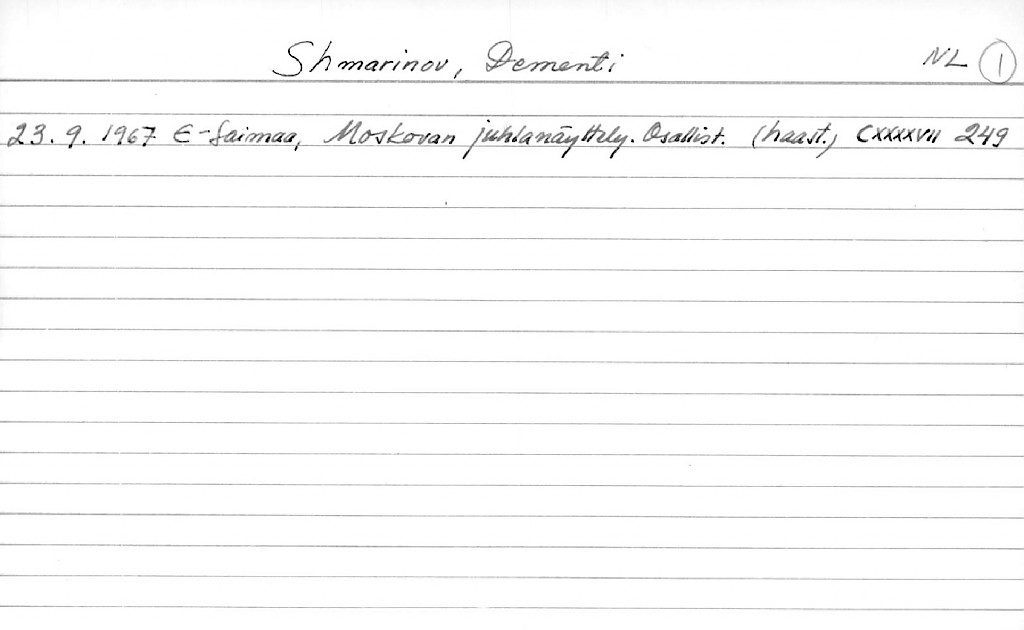 Shmarinov, Dementi NL 1
23.9.1967 E-Saimaa, Moskovan juhlanäyttely. Osallist. (haast.) CXXXXVII 249